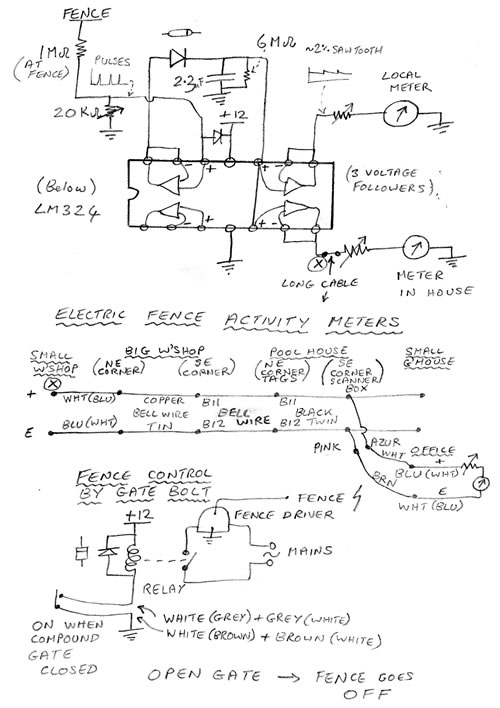 FENCE
1MΩ
(AT FENCE)
PULSES
20KΩ
2.2µF
6MΩ
~2% SAWTOOTH
LOCAL METER
+12
- + + -
(Below)
LM324
(3 VOLTAGE FOLLOWERS)
- + + -
X
LONG CABLE
METER IN HOUSE
ELECTRIC FENCE ACTIVITY METERS
SMALL W'SHOP
BIG W'SHOP
(NE CORNER)
(SE CORNER)
POOL HOUSE
(NE CORNER TAGS)
(SE CORNER SCANNER BOX
SMALL G'HOUSE
X
+ WHT(BLU) COPPER B11 B11
BELL WIRE BELL WIRE BLACK
E BLU(WHT) TIN B12 B12 TWIN
PINK
AZUR
WHT
OFFICE
+
BLU(WHT)
BRN
E
WHT(BLU)
FENCE CONTROL
BY GATE BOLT
+12
FENCE
FENCE DRIVER
MAINS
RELAY
ON WHEN
COMPOUND
GATE
CLOSED
WHITE(GREY)+GREY(WHITE)
WHITE(BROWN)+BROWN(WHITE)
OPEN GATE → FENCE GOES
OFF